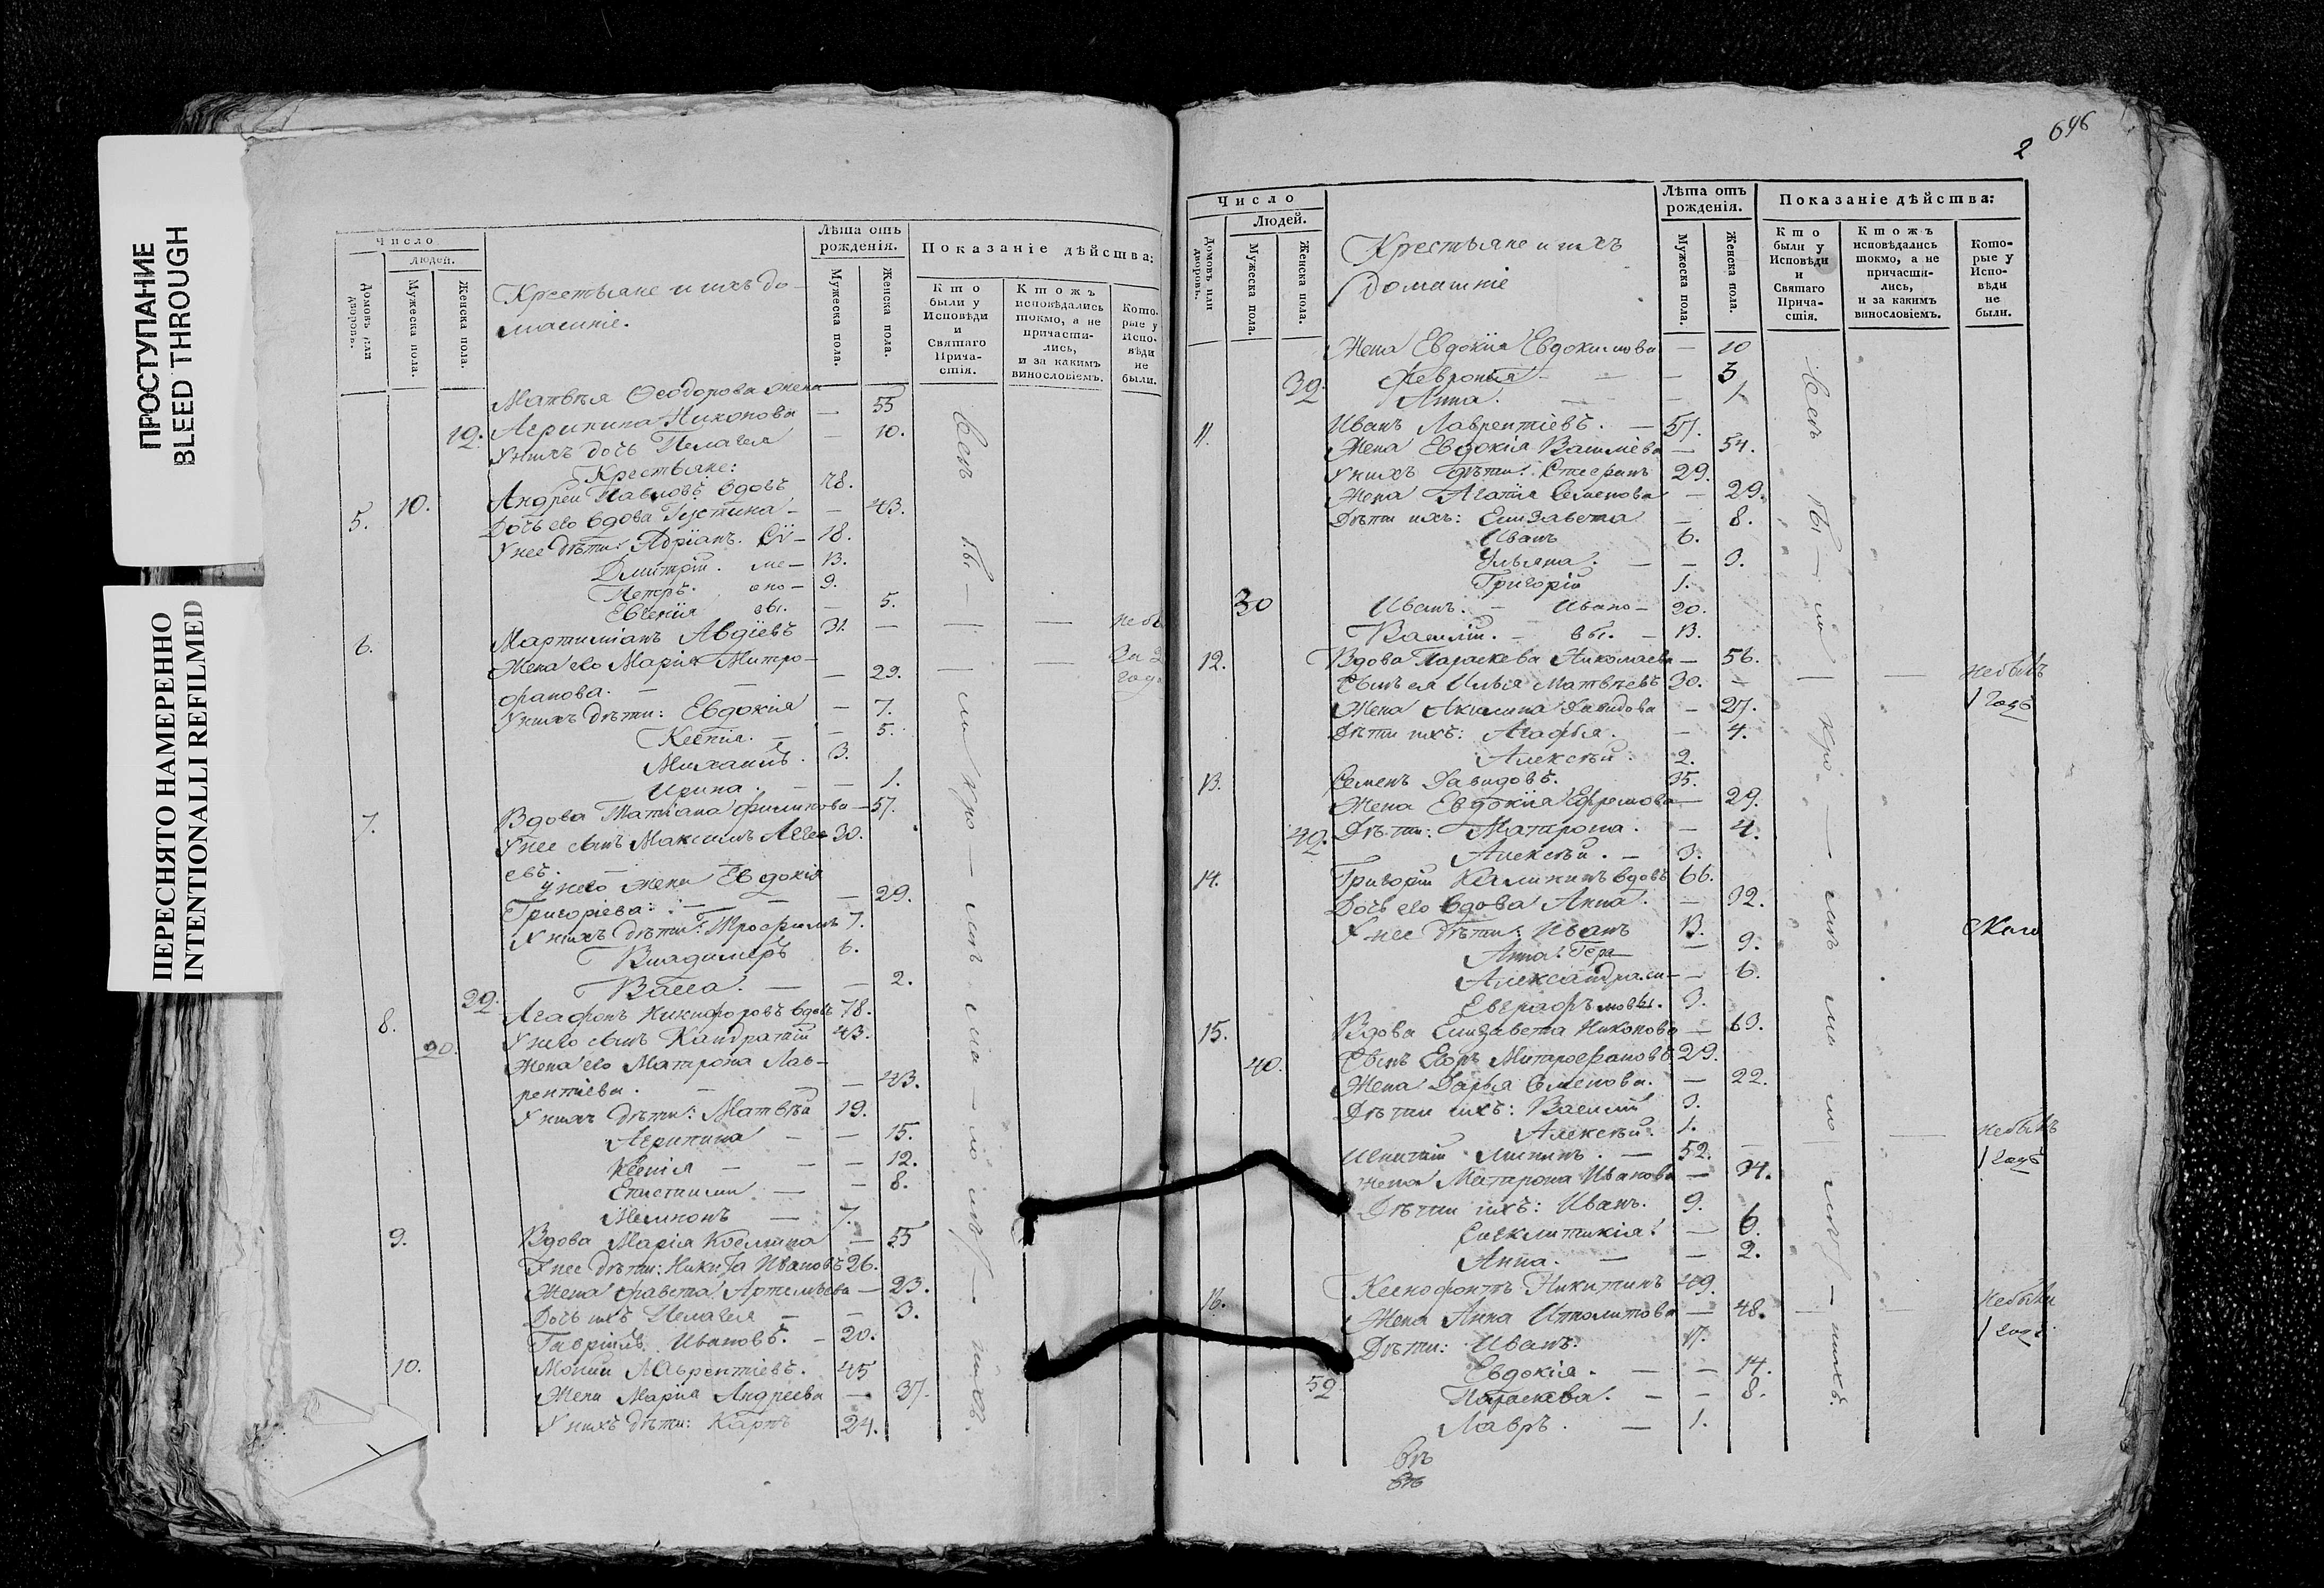 ПРОСТУПАНИЕ
BLEED THROUGH
ПЕРЕСНЯТО НАМЕРЕННО
INTENTIONALLI REFILMED
Число
людей.
Домовъ или дворовъ.
Мужеска пола.
Женска пола.
Крестьяне и ихъ до-
машніе.
Лѣта отъ рожденія.
Мужеска пола.
Женска пола.
Показаніе дѣйства:
Кто были у Исповѣди и Святаго Причастія.
Кто жъ исповѣдались токмо, а не причастились, и за какимъ винословіемъ.
Которые у Исповѣди не были.
Матвѣя Ѳеодорова жена
12. Агрипина Никонова — 55
У нихъ дочь Пелагея — 10.
Крестьяне:
5. 10. Андрей Павловъ вдовъ 78.
Дочь его вдова Густина — 43.
У нее дѣти: Адріанъ. 18.
Дмитрій. 13.
Петръ. 9.
Евгенія 5.
6. Мартиніанъ Авдіевъ 31. — — —
Жена его Марія Митро-
фанова. — — 29. — —
У нихъ дѣти: Евдокія — 7.
Ксенія. — — 5.
Михаилъ. 3.
Ирина. — — 1.
7. Вдова Татіана Филипова — 57.
У нее сынъ Максимъ 30.
евъ.
у него жена Евдокія
Григоріева: — — — 29.
У нихъ дѣти: Трофимъ 7.
Владимеръ 6.
22. Васса. — — 2.
8. Агафонъ Никифоровъ вдовъ 78.
20. У него сынъ Кандратій 43.
Жена его Матрона Лав-
рентіева. — — — 43.
У нихъ дѣти: Матвѣй 19.
Агрипина — — 15.
Ксенія — — — 12.
— — 8.
— 7.
9. Вдова Марія — 55
У нее дѣти: Никита Ивановъ 26.
Жена Артемьева — 23.
Дочь ихъ Пелагея — — 3.
Гавріилъ Ивановъ. — 20.
10. Лаврентіевъ. 45
Жена Марія Андреева — 37.
У нихъ дѣти: Карпъ 24.
646
2
Число
Людей.
Домовъ или дворовъ.
Мужеска пола.
Женска пола.
Крестьяне и ихъ
домашніе
Лѣта отъ рожденія.
Мужеска пола.
Женска пола.
Показаніе дѣйства:
Кто были у Исповѣди и Святаго Причастія.
Кто жъ исповѣдались токмо, а не причастились, и за какимъ винословіемъ.
Которые у Исповѣди не были.
Жена Евдокія Евдокимова — 20
32. Февронія — — — 3
Анна. — — 1.
11. Иванъ Лаврентіевъ. — 57.
Жена Евдокія — 54.
У нихъ дѣти: 29.
Жена Агапія Семенова — 29.
Дѣти ихъ: Елизавета — 8.
Иванъ 6.
Ульяна. — — 3.
Григорій 1.
30 Иванъ. — Ивано — 20.
Василій. — вы. — 13.
12. Вдова Параскева Николаева — 56.
Сынъ ея Илья Матвѣевъ 30. — — — небылъ
Жена Акилина Давидова — 27. 1 годъ
Дѣти ихъ: Агафья. — 4.
Алексѣй. 2.
13. Семенъ Давидовъ. 35.
Жена Евдокія Ефремова — 29.
42. Дѣти: Матрона. — 4.
Алексѣй. — 3.
14. Григорій Калининъ вдовъ 66.
Дочь его вдова Анна. — 32.
У нее дѣти: Иванъ 13.
Анна. — 9.
Александра — 6.
Евграфъ 3.
15. Вдова Елизавета Никонова — 63.
40. Сынъ Егоръ Митрофановъ. 29.
Жена Дарья Семенова. — 22.
Дѣти ихъ: Василій 3.
Алексѣй. 1.
52. — — — небылъ
Жена Матрона Иванова — 34. 1 годъ
Дѣти ихъ: Иванъ. 9.
Синклитикія: — 6.
Анна. — — 2.
16. Ксенофонтъ Никитинъ 49.
Жена Анна Ипполитова — 48. — — небыли
Дѣти: Иванъ: 17. 1 годъ
Евдокія. — — 14.
52 Параскева. — — 8.
Лавръ. — 1.